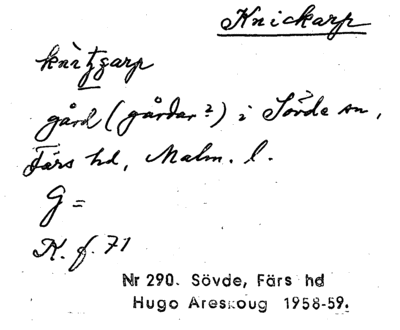 Knickarp
gård (gårdar?) i Sövde sn,
Färs hd, Malm. l.
G =
K. f. 71
Nr 290. Sövde, Färs hd
Hugo Areskoug 1958-59.